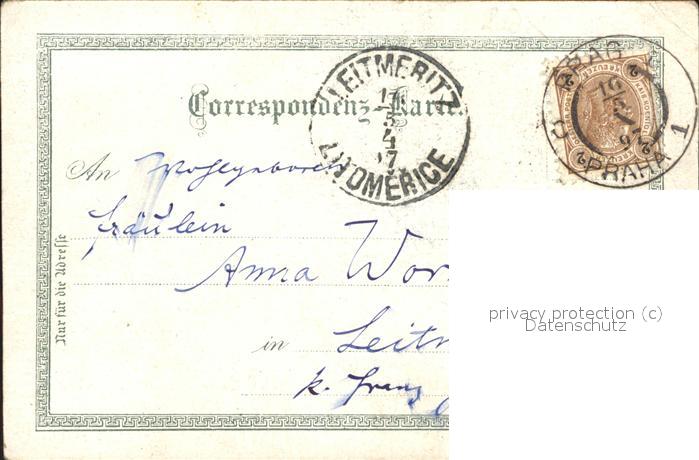 Correspondenz-Karte.
LEITMERITZ
17
5
4
97
LITOMĚŘICE
PRAG
PRAHA 1
2 KREUZER 2
An Wohlgeboren
Fräulein
Anna Wor
in Leitm
k. Franz
Nur für die Adresse
privacy protection (c)
Datenschutz